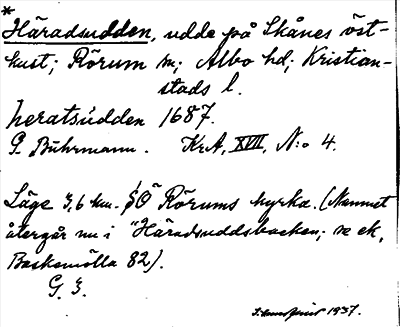 *
Häradsudden, udde på Skånes öst-
kust; Rörum sn; Albo hd; Kristian-
stads l.
heratsudden 1687.
G. Buhrmann. KrA, XVII, N:o 4.
Läge 3,6 km. SÖ Rörums kyrka. (Namnet
återgår nu i "Häradsuddsbacken; se ek.
Baskemölla 82).
G. 3.
1937.